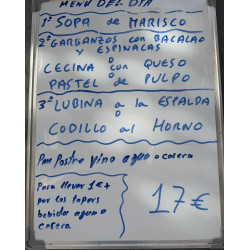 MENÚ DEL DÍA
1º SOPA de MARISCO
2º GARBANZOS con BACALAO
Y ESPINACAS
o
CECINA con QUESO
o
PASTEL de PULPO
3º LUBINA a la ESPALDA
o
CODILLO al HORNO
Pan Postre vino agua o casera
Para llevar 1€ +
por los tapers
bebidas agua o
casera
17€